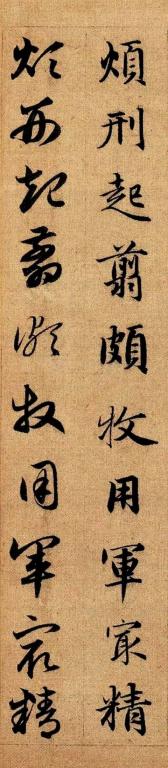 煩刑起翦頗牧用軍宼精
煩刑起翦頗牧用軍宼精